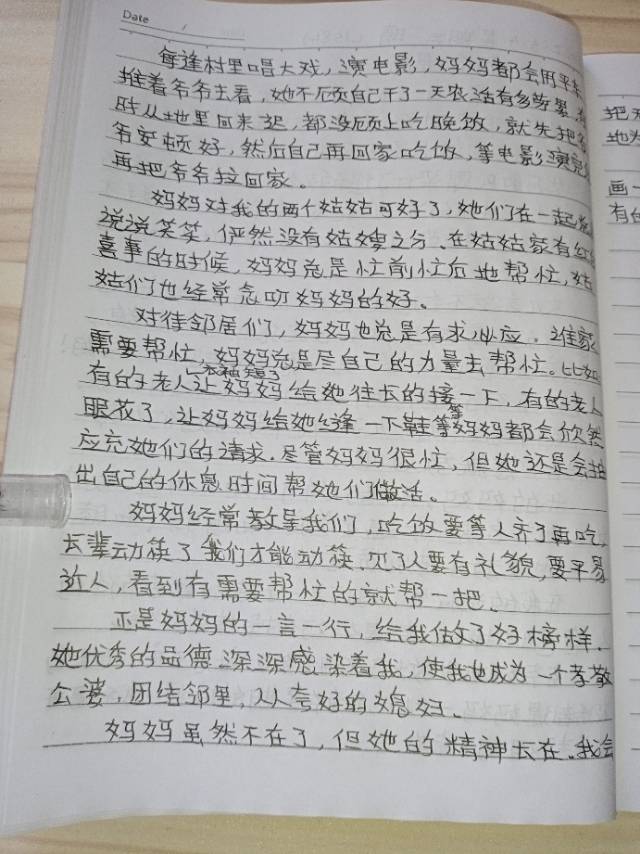 Date
每逢村里唱大戏，演电影，妈妈都会用平车
推着爷爷去看，她不顾自己干了一天农活有多劳累，有
时从地里回来迟，都没顾上吃晚饭，就先把爷
爷安顿好，然后自己再回家吃饭，等电影演完
再把爷爷拉回家。
妈妈对我的两个姑姑可好了，她们在一起总
说说笑笑，俨然没有姑嫂之分。在姑姑家有红
喜事的时候，妈妈总是忙前忙后地帮忙，姑
姑们也经常念叨妈妈的好。
对待邻居们，妈妈也总是有求必应。谁家
需要帮忙，妈妈总是尽自己的力量去帮忙。比如
有的老人让妈妈给她往长的接一下，有的老人
眼花了，让妈妈给她缝一下鞋等妈妈都会欣然
应充她们的请求。尽管妈妈很忙，但她还是会抽
出自己的休息时间帮她们做活。
妈妈经常教导我们，吃饭要等人齐了再吃，
长辈动筷了我们才能动筷。见了人要有礼貌，要平易
近人，看到有需要帮忙的就帮一把。
正是妈妈的一言一行，给我做了好榜样。
她优秀的品德深深感染着我，使我也成为一个孝敬
公婆，团结邻里，人人夸好的媳妇。
妈妈虽然不在了，但她的精神长在。我会
把
地
画
有的